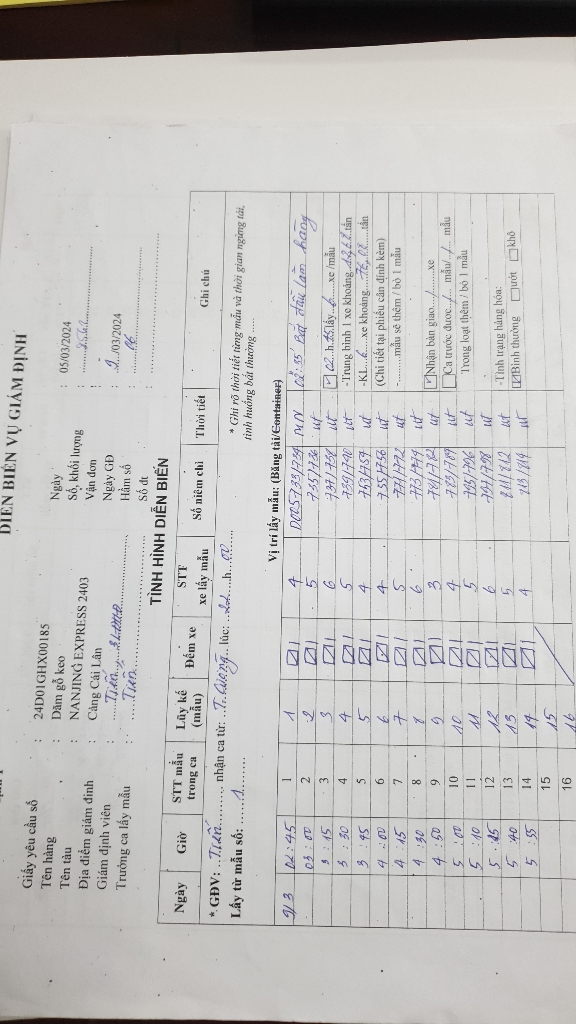 DIỄN BIẾN VỤ GIÁM ĐỊNH
Giấy yêu cầu số : 24D01GHX00185 Ngày : 05/03/2024
Tên hàng : Dăm gỗ keo Số, khối lượng
Tên tàu : NANJING EXPRESS 2403 Vận đơn :
Địa điểm giám định : Cảng Cái Lân Ngày GĐ : 9../03/2024
Giám định viên : Tiến Hầm số : 06
Trưởng ca lấy mẫu : Tiến Số đt :
TÌNH HÌNH DIỄN BIẾN
Ngày Giờ STT mẫu trong ca Lũy kế (mẫu) Đếm xe STT xe lấy mẫu Số niêm chì Thời tiết Ghi chú
* GĐV: ..Tiến.., nhận ca từ: ..Cường.. lúc: ..22..h..00..
Lấy từ mẫu số: ..1..
* Ghi rõ thời tiết từng mẫu và thời gian ngừng tải, tình huống bất thường .....
Vị trí lấy mẫu: (Băng tải/Container)
9/3 02:45 1 1 4 733/734 02:35 Bắt đầu làm hàng
03:00 2 2 5 735/736 ut
3:15 3 3 6 737/738 ut 02.h.35.lấy..6..xe/mẫu
3:30 4 4 5 739/740 ut -Trung bình 1 xe khoảng tấn
3:45 5 5 4 ut -KL..6..xe khoảng tấn
4:00 6 6 4 ut (Chi tiết tại phiếu cân đính kèm)
4:15 7 7 5 771/772 ut -........mẫu sẽ thêm / bỏ 1 mẫu
4:30 8 8 6 ut
4:50 9 9 3 781/782 ut Nhận bàn giao../..xe
5:00 10 10 4 ut Ca trước được../..mẫu/../.. mẫu
5:10 11 11 5 ut Trong loạt thêm / bỏ 1 mẫu
5:25 12 12 6 797/798 ut
5:40 13 13 5 811/812 ut -Tình trạng hàng hóa:
5:55 14 14 4 813/814 ut Bình thường ướt khô
15 15
16 16